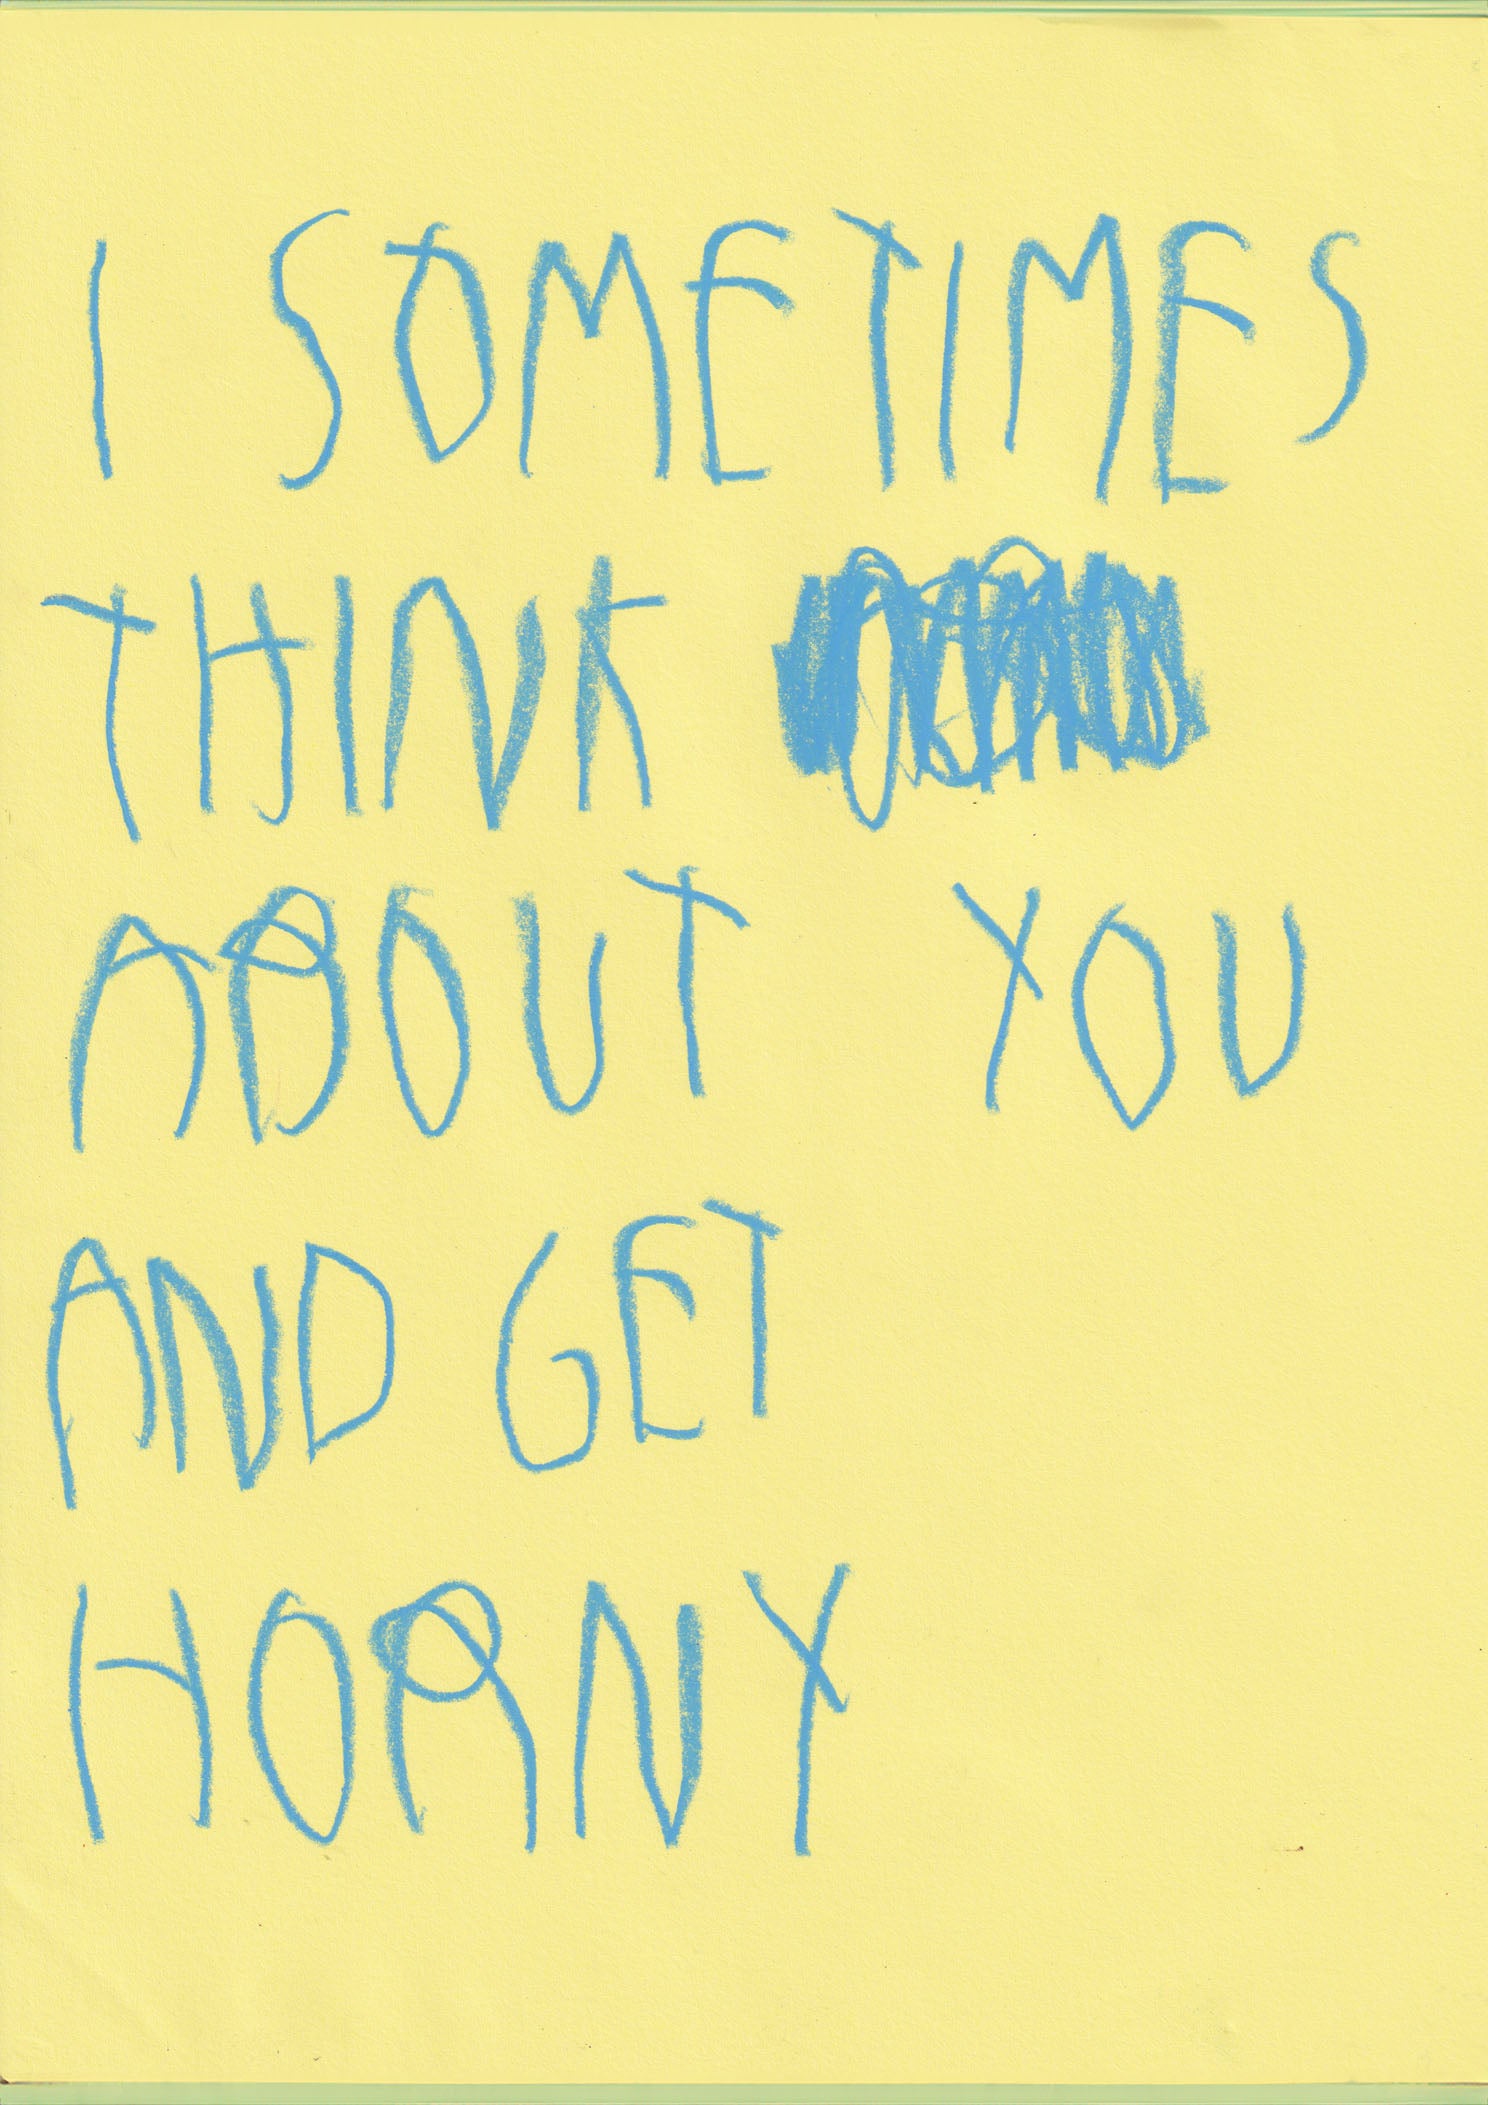 I SOMETIMES
THINK
ABOUT YOU
AND GET
HORNY